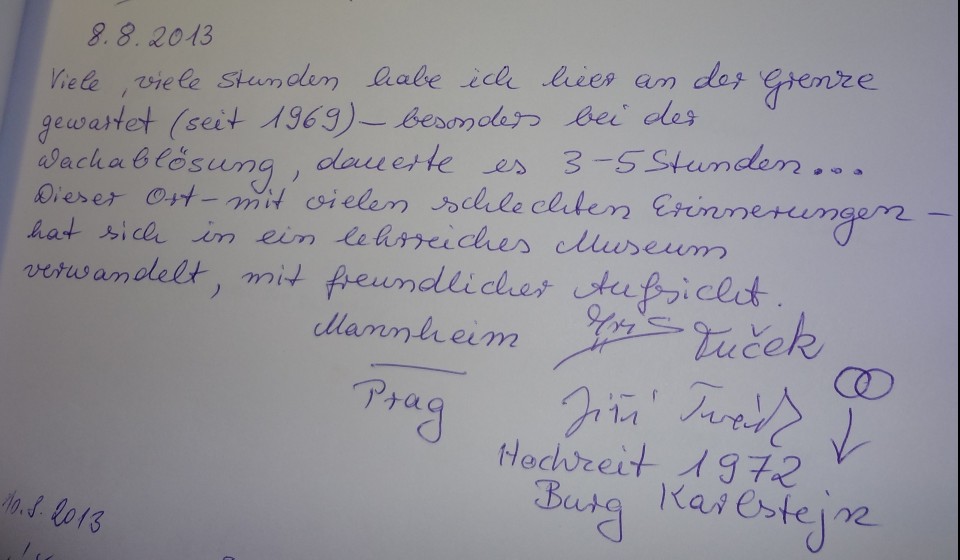 8.8.2013
Viele, viele Stunden habe ich hier an der Grenze
gewartet (seit 1969) – besonders bei der
Wachablösung, dauerte es 3–5 Stunden...
Dieser Ort – mit vielen schlechten Erinnerungen –
hat sich in ein lehrreiches Museum
verwandelt, mit freundlicher Aufsicht.
Mannheim Tuček
Prag Jiří
Hochzeit 1972
Burg Karlstejn
10.8.2013